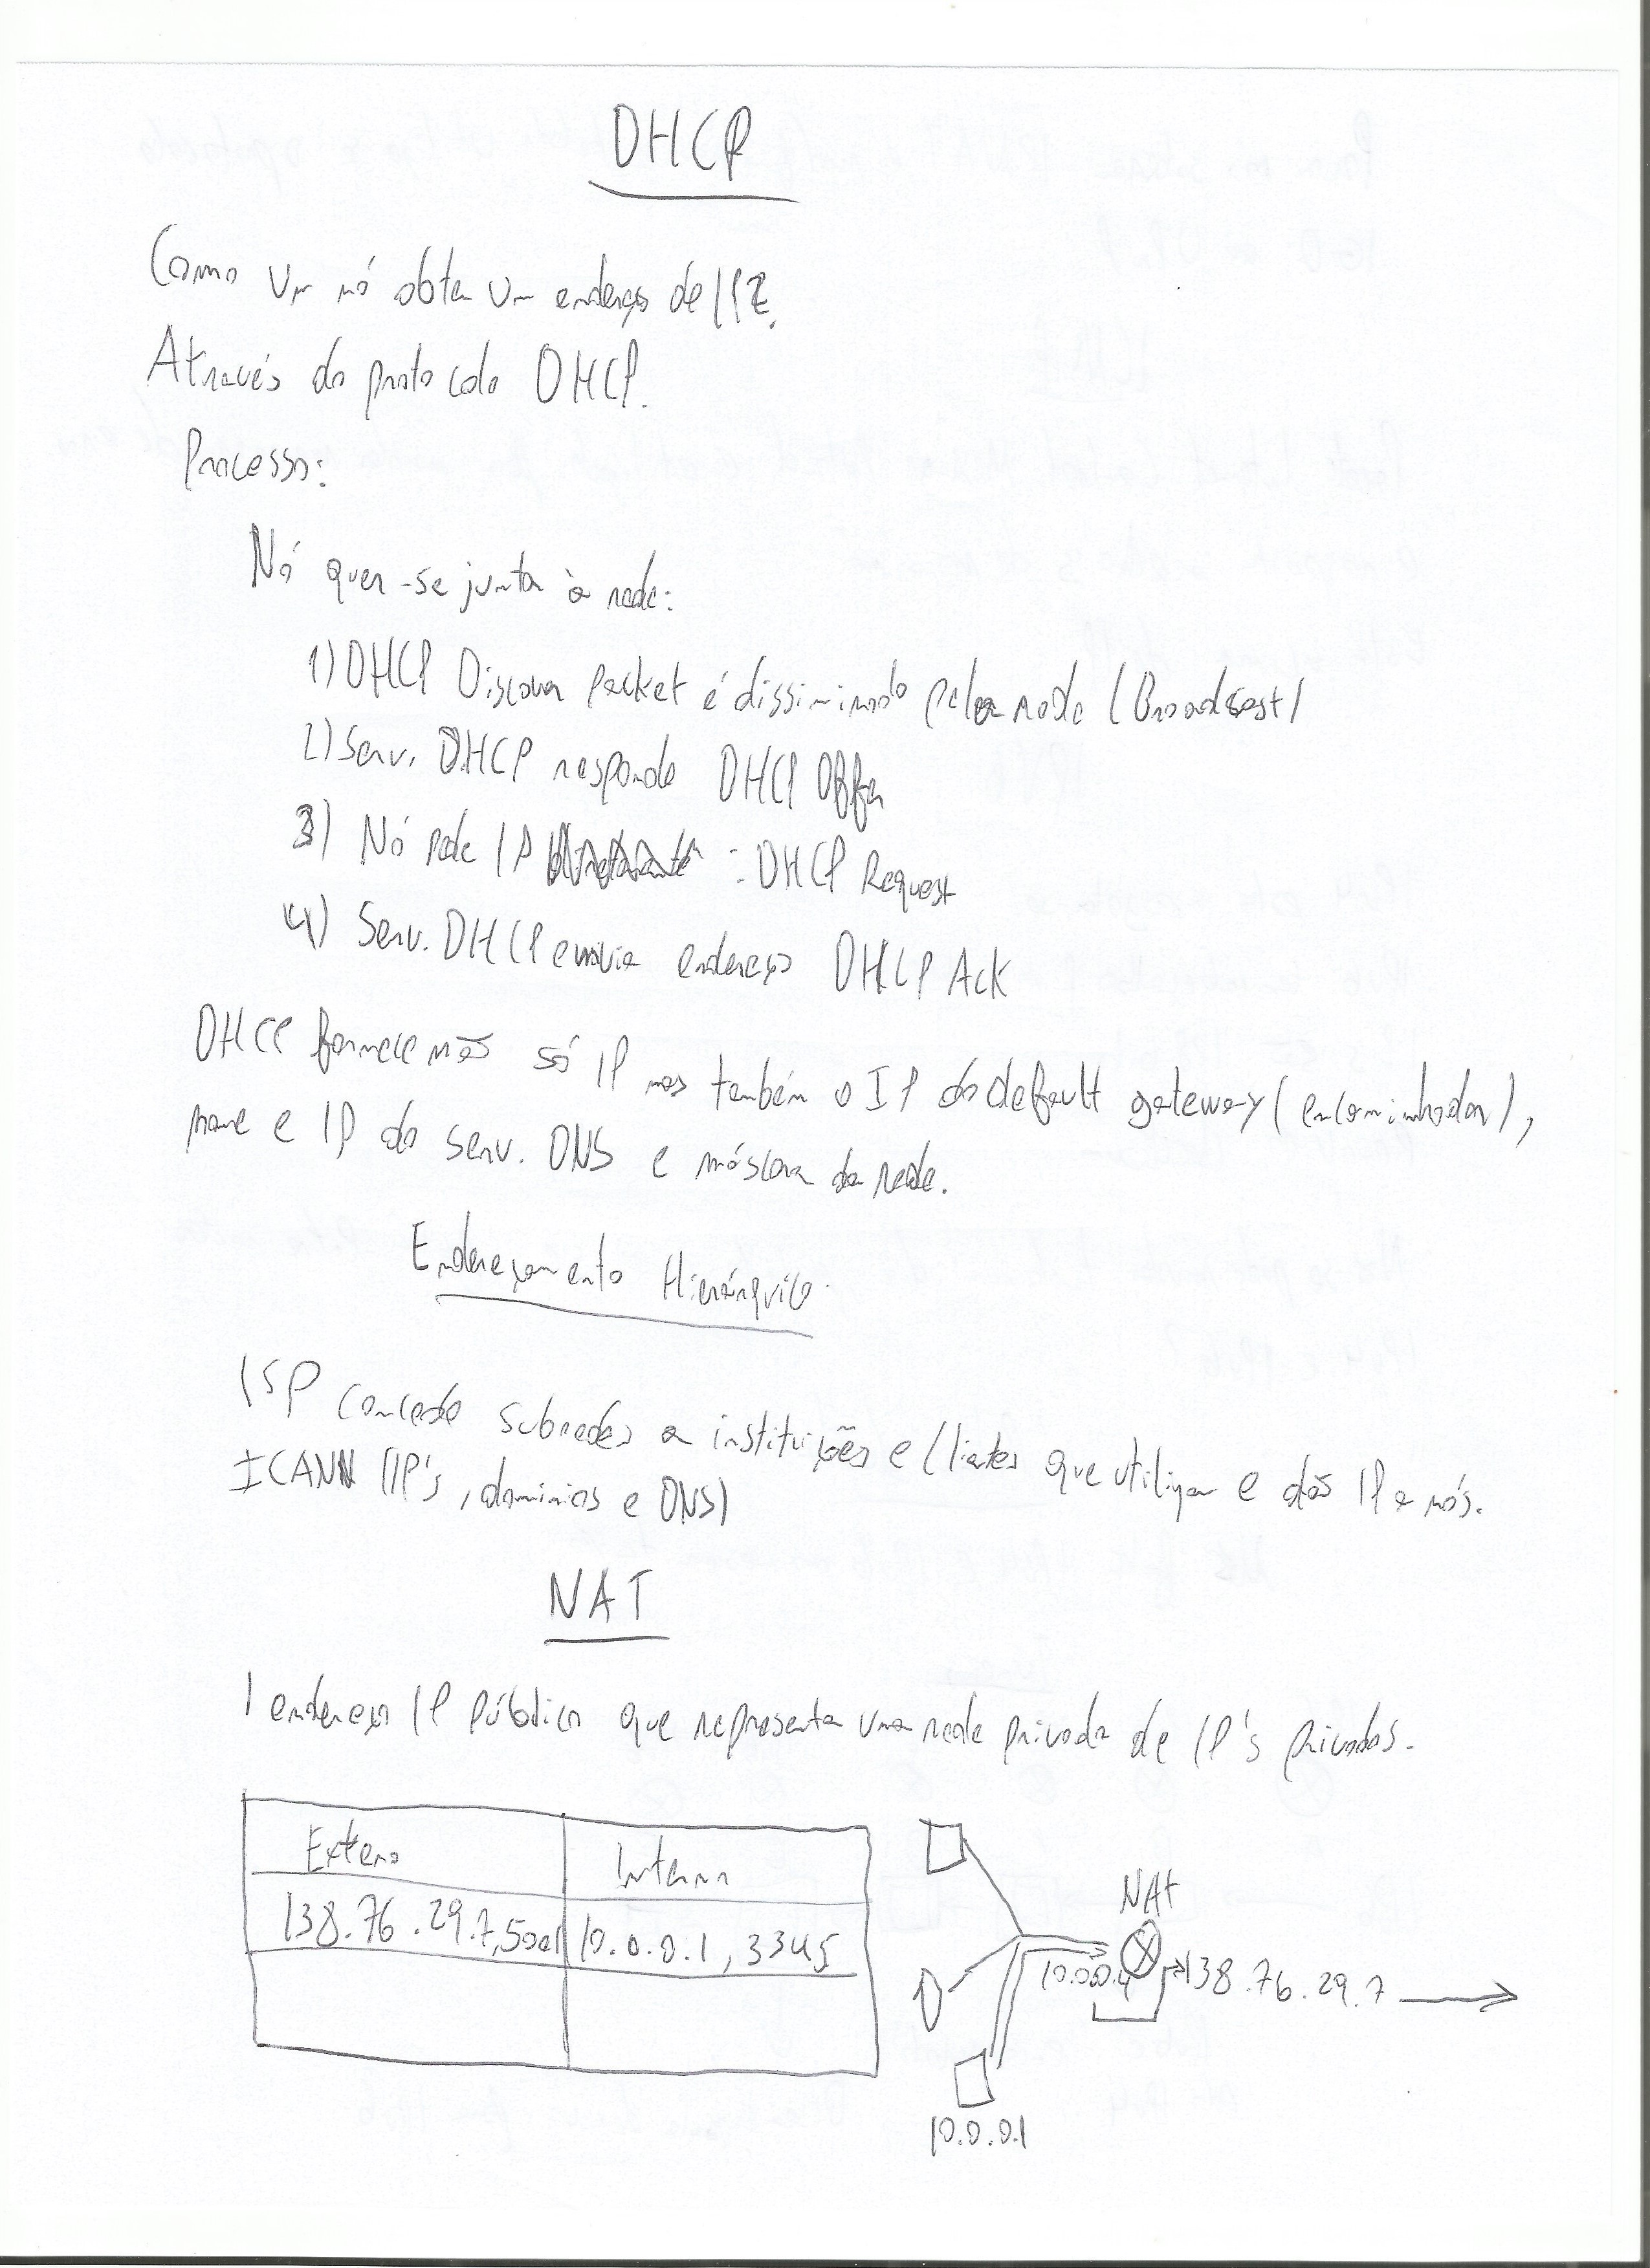 DHCP
Como um nó obtem um endereço de IP?
Através do protocolo DHCP.
Processo:
Nó quer-se juntar à rede:
1) DHCP Discover packet é dissiminado pela rede (Broadcast)
2) Serv. DHCP responde DHCP Offer
3) Nó pede IP : DHCP Request
4) Serv. DHCP envia endereço DHCP Ack
DHCP fornece não só IP mas também o IP do default gateway (encaminhador),
nome e IP do serv. DNS e máscara da rede.
Endereçamento Hierárquico
ISP concede subredes a instituições e clientes que utilizam e dão IP a nós.
ICANN (IP's, dominios e DNS)
NAT
1 endereço IP público que representa uma rede privada de IP's privados.
Externo Interno
138.76.29.7,5001 10.0.0.1, 3345
NAT
10.0.0.4 138.76.29.7
10.0.0.1